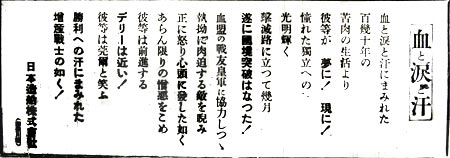 血と涙と汗
血と涙と汗にまみれた
百幾十年の
苦肉の生活より
彼等が 夢に! 現に!
憧れた獨立への
光明輝く
撃滅路に立つて幾月
遂に國境突破はなつた!
血盟の戰友皇軍に協力しつゝ
執拗に肉迫する敵を睨み
正に怒り心頭に發した如く
あらん限りの憎惡をこめ
彼等は前進する
デリーは近い!
彼等は莞爾と笑ふ
勝利への汗にまみれた
増産戰士の如く!
日本造船株式會社